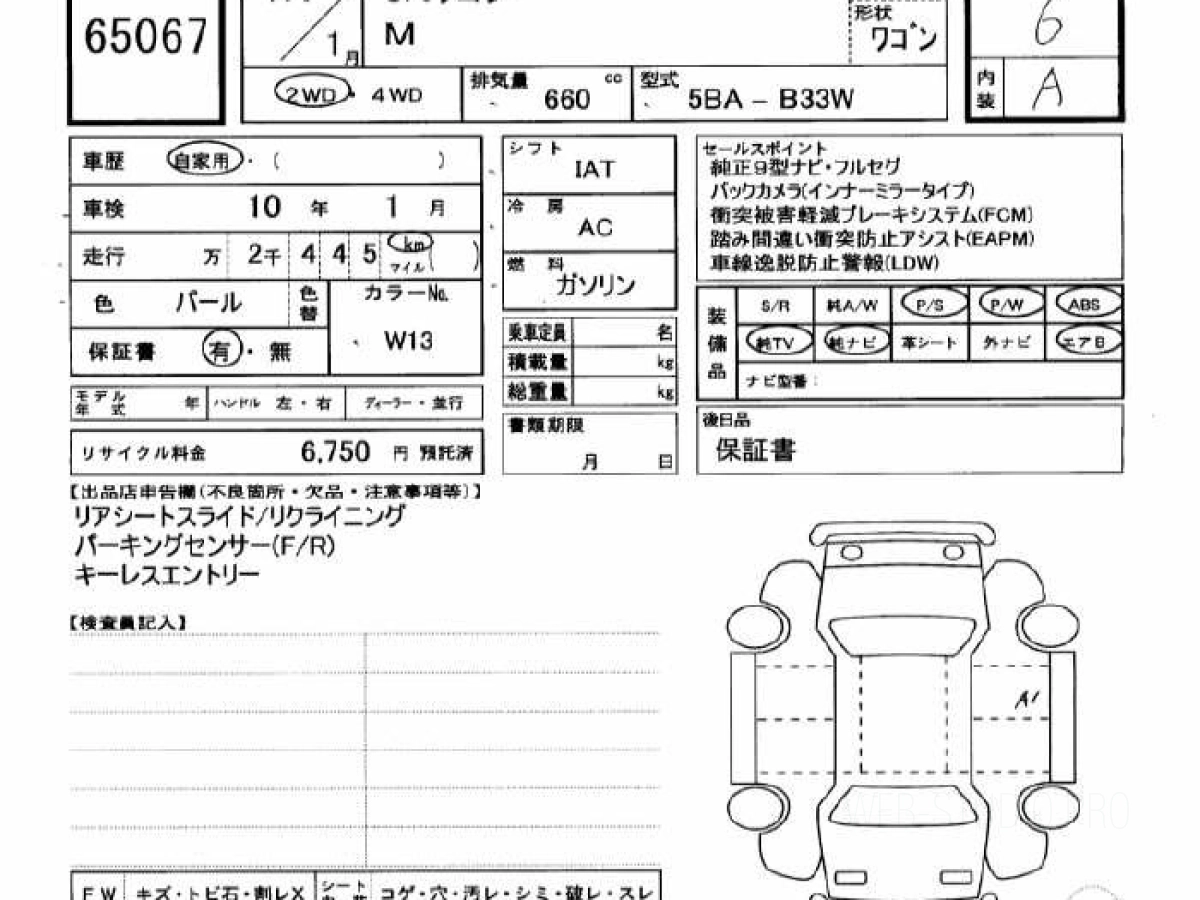 65067
1月
M
形状
ワゴン
6
2WD・4WD
排気量 660 cc
型式 5BA-B33W
内装 A
車歴 自家用・( )
車検 10年 1月
走行 万 2千 4 4 5 km マイル( )
色 パール 色替
カラーNo. W13
保証書 有・無
モデル年式 年 ハンドル 左・右 ディーラー・並行
リサイクル料金 6,750 円 預託済
シフト IAT
冷房 AC
燃料 ガソリン
乗車定員 名
積載量 kg
総重量 kg
書類期限
月 日
セールスポイント
純正9型ナビ・フルセグ
バックカメラ(インナーミラータイプ)
衝突被害軽減ブレーキシステム(FCM)
踏み間違い衝突防止アシスト(EAPM)
車線逸脱防止警報(LDW)
装備品
S/R 純A/W P/S P/W ABS
純TV 純ナビ 革シート 外ナビ エアB
ナビ型番:
後日品
保証書
【出品店申告欄(不良箇所・欠品・注意事項等)】
リアシートスライド/リクライニング
パーキングセンサー(F/R)
キーレスエントリー
【検査員記入】
A1
FW キズ・トビ石・割レX シート コゲ・穴・汚レ・シミ・破レ・スレ